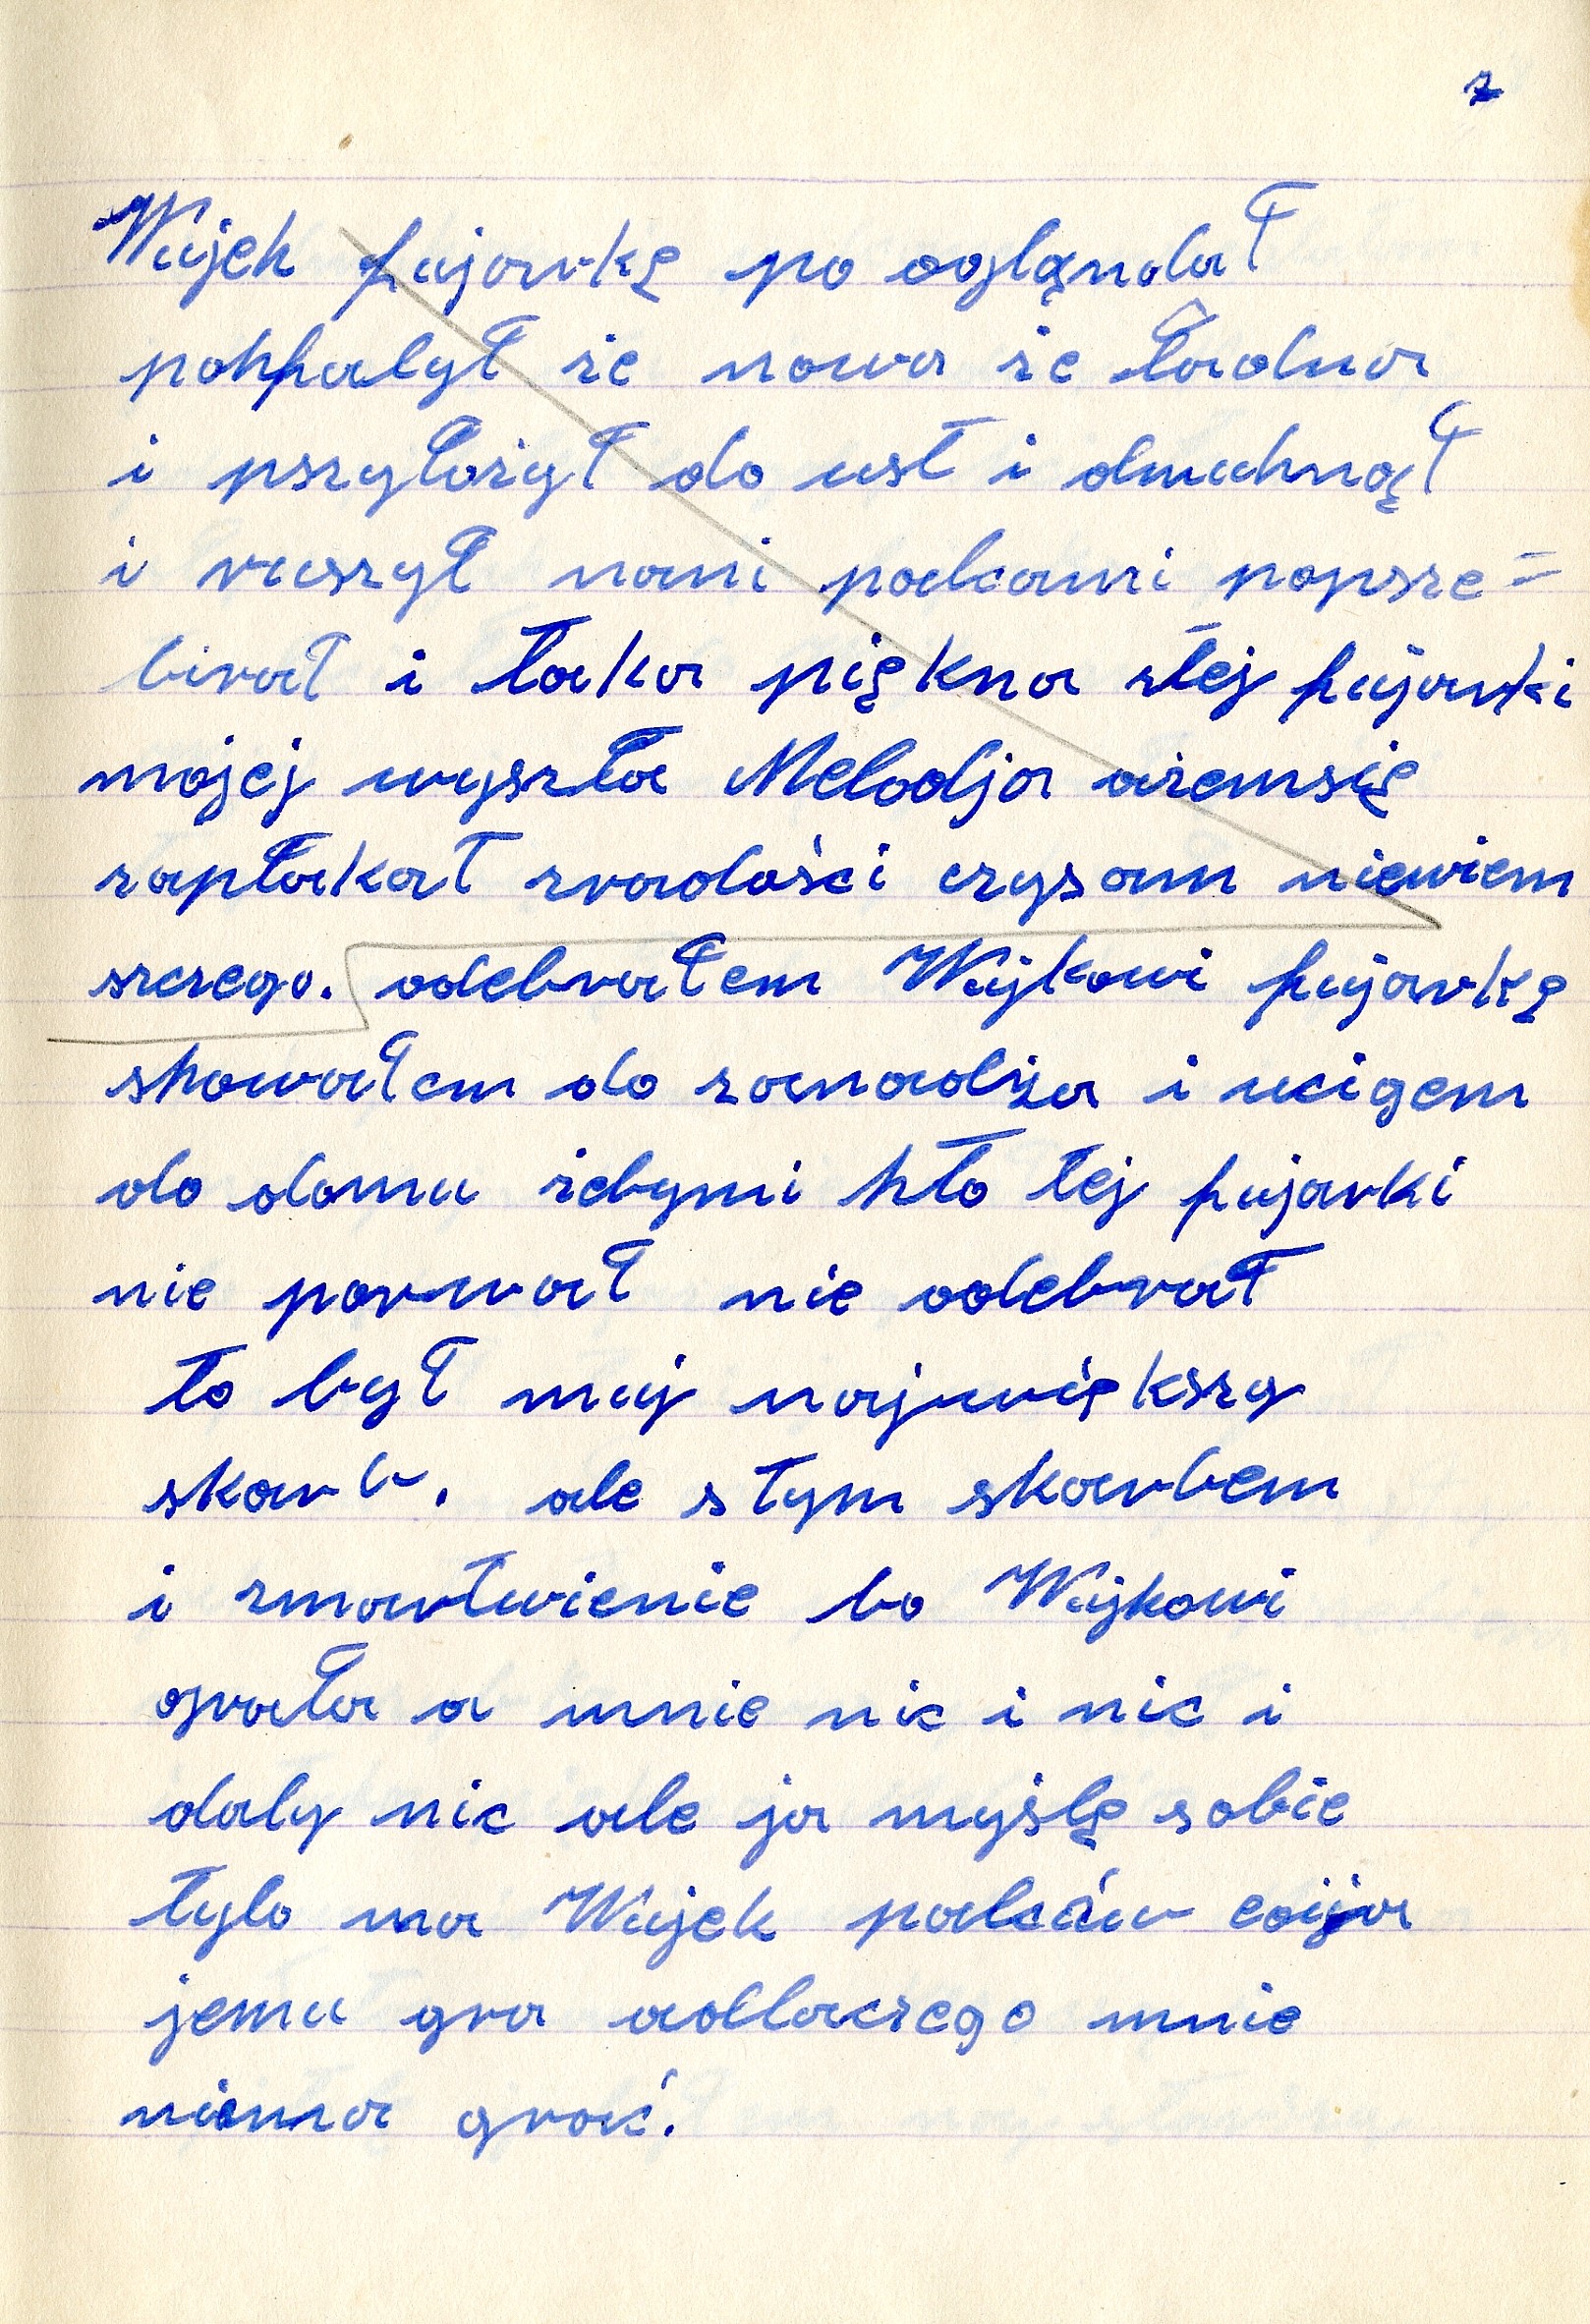 7
Wujek fujarkę po ogląndał
pohfalył że nowa że ładna
i pszyłożył do ust i dmuhnął
i ruszył nani palcami popsze=
birał i taka piękna stej fujarki
mojej wyszła Melodja ażemsię
zapłakał zradości czysam niewiem
szczego. odebrałem Wujkowi fujarkę
showałem do zanadża i ucigem
do domu żebymi hto tej fujarki
nie porwał nie odebrał
to był muj największy
skarb. ale s tym skarbem
i zmartwienie bo Wujkowi
grała a mnie nic i nic i
daly nic ale ja myślę sobie
tylo ma Wujek palcuw coija
jemu gra adlaczego mnie
niema grać.